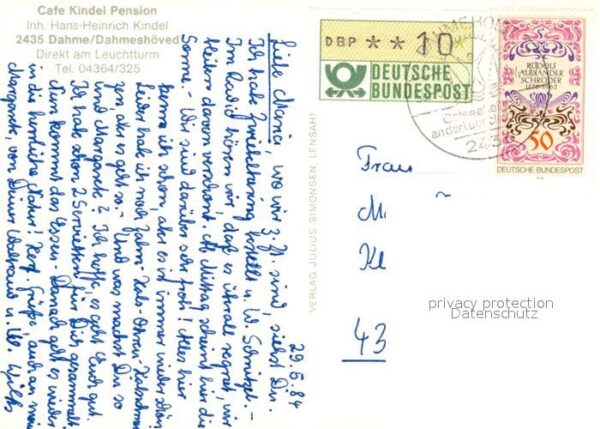 Cafe Kindel Pension
Inh. Hans-Heinrich Kindel
2435 Dahme/Dahmeshöved
Direkt am Leuchtturm
Tel. 04364/325
DBP ** 10
DEUTSCHE
BUNDESPOST
RUDOLF
ALEXANDER
SCHRÖDER
1878-1962
50
DEUTSCHE BUNDESPOST
VERLAG JULIUS SIMONSEN, LENSAHN
29.5.84
Liebe Maria, wo wir z. Zt. sind, siehst Du.
Ich habe Zwiebelhering bestellt u. W. Schnitzel. -
Im Radio hören wir, daß es überall regnet, wir
bleiben davon verschont. Ab Mittag scheint hier die
Sonne - Wir sind darüber sehr froh! Alles hier
kenne ich schon aber es ist immer wieder schön
Leider habe ich noch Zahn-Hals-Ohren
aber es geht so. - Und was machst Du so
und Margaret? Ich hoffe, es geht Euch gut.
Ich habe schon 2 Servietten für Dich gesammelt
kommt das Essen - Danach geht es wieder
in die herrliche Natur! Herzl. Grüße auch an
Margaret, von Deiner Waltraud u. W.
Frau
M.
Kl
43
privacy protection
Datenschutz